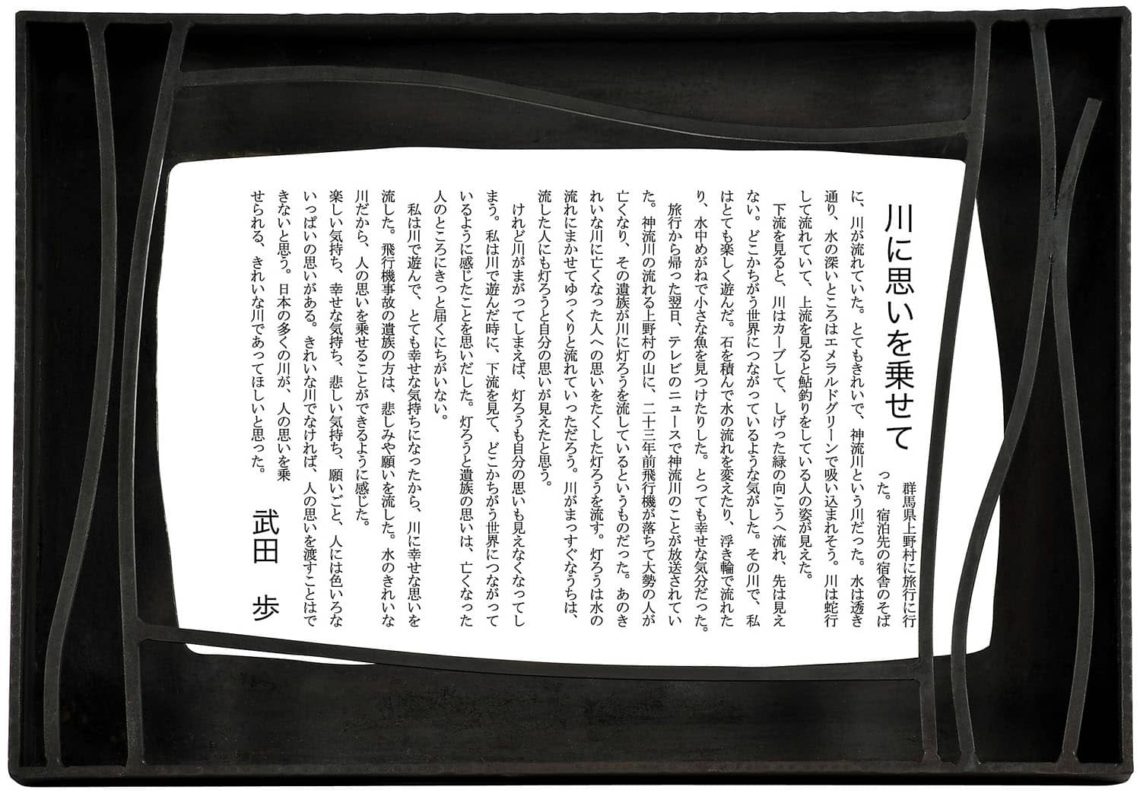 川に思いを乗せて
群馬県上野村に旅行に行
った。宿泊先の宿舎のそば
に、川が流れていた。とてもきれいで、神流川という川だった。水は透き
通り、水の深いところはエメラルドグリーンで吸い込まれそう。川は蛇行
して流れていて、上流を見ると鮎釣りをしている人の姿が見えた。
下流を見ると、川はカーブして、しげった緑の向こうへ流れ、先は見え
ない。どこかちがう世界につながっているような気がした。その川で、私
はとても楽しく遊んだ。石を積んで水の流れを変えたり、浮き輪で流れた
り、水中めがねで小さな魚を見つけたりした。とっても幸せな気分だった。
旅行から帰った翌日、テレビのニュースで神流川のことが放送されてい
た。神流川の流れる上野村の山に、二十三年前飛行機が落ちて大勢の人が
亡くなり、その遺族が川に灯ろうを流しているというものだった。あのき
れいな川に亡くなった人への思いをたくした灯ろうを流す。灯ろうは水の
流れにまかせてゆっくりと流れていっただろう。川がまっすぐなうちは、
流した人にも灯ろうと自分の思いが見えたと思う。
けれど川がまがってしまえば、灯ろうも自分の思いも見えなくなってし
まう。私は川で遊んだ時に、下流を見て、どこかちがう世界につながって
いるように感じたことを思いだした。灯ろうと遺族の思いは、亡くなった
人のところにきっと届くにちがいない。
私は川で遊んで、とても幸せな気持ちになったから、川に幸せな思いを
流した。飛行機事故の遺族の方は、悲しみや願いを流した。水のきれいな
川だから、人の思いを乗せることができるように感じた。
楽しい気持ち、幸せな気持ち、悲しい気持ち、願いごと、人には色いろな
いっぱいの思いがある。きれいな川でなければ、人の思いを渡すことはで
きないと思う。日本の多くの川が、人の思いを乗
せられる、きれいな川であってほしいと思った。
武田　歩